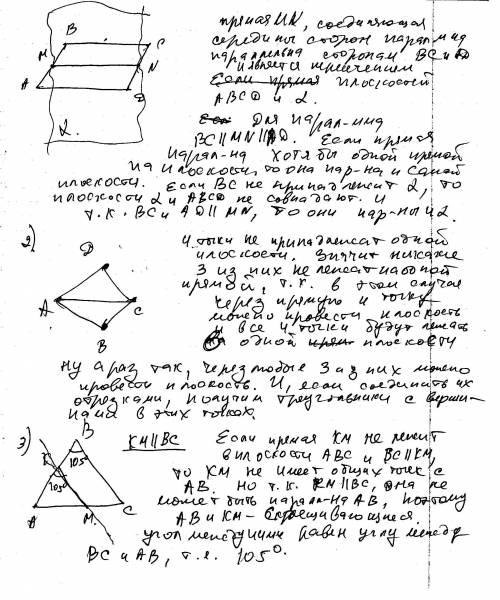 прямая MN, соединяющая
B
середины сторон парал-мма
C
M
параллельна сторонам BC и AD
N
и является пересечением
Если прямая плоскостей
A
D
ABCD и α.
α.
Для парал-мма
BC || MN || AD. Если прямая
парал-на хотя бы одной прямой
на плоскости, то она пар-на и самой
плоскости. Если BC не принадлежит α, то
плоскости α и ABCD не совпадают. И
т.к. BC и AD || MN, то они пар-ны и α.
2)
4 точки не принадлежат одной
D
плоскости. Значит никакие
3 из них не лежат на одной
прямой, т.к. в этом случае
A
C
через прямую и точку
можно провести плоскость
B
и все 4 точки будут лежать
в одной плоскости
ну а раз так, через любые 3 из них можно
провести плоскость. И, если соединить их
отрезками, получим треугольники с верши-
нами в этих точках.
3)
B
KM || BC
Если прямая KM не лежит
105°
в плоскости ABC и BC || KM,
K
то KM не имеет общих точек с
105°
AB. Но т.к. KM || BC, она не
A
M
C
может быть парал-на AB, поэтому
AB и KM - скрещивающиеся.
Угол между ними равен углу между
BC и AB, т.е. 105°.